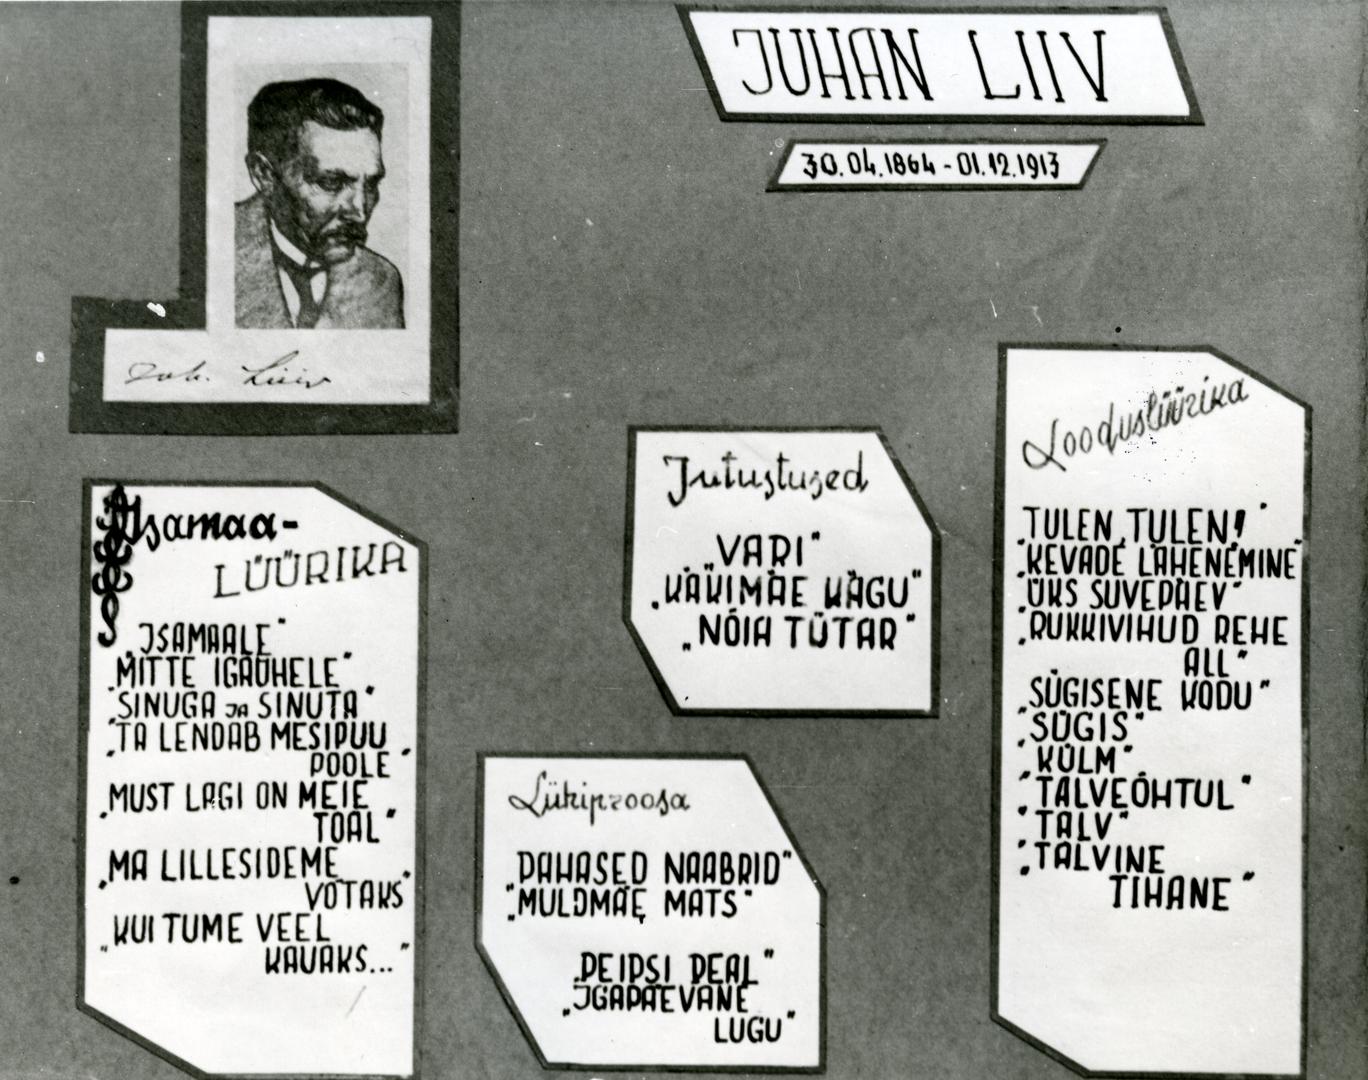 JUHAN LIIV
30.04.1864 - 01.12.1913
Joh. Liiv
Isamaa-
LÜÜRIKA
„ISAMAALE"
„MITTE IGAÜHELE"
„SINUGA JA SINUTA"
„TA LENDAB MESIPUU
POOLE"
„MUST LAGI ON MEIE
TOAL"
„MA LILLESIDEME
VÕTAKS"
„KUI TUME VEEL
KAUAKS..."
Jutustused
„VARI"
„KÄKIMÄE KÄGU"
„NÕIA TÜTAR"
Lühiproosa
„PAHASED NAABRID"
„MULDMÄE MATS"
„PEIPSI PEAL"
„IGAPÄEVANE
LUGU"
Looduslüürika
„TULEN, TULEN!"
„KEVADE LÄHENEMINE"
„ÜKS SUVEPÄEV"
„RUKKIVIHUD REHE
ALL"
„SÜGISENE KODU"
„SÜGIS"
„KÜLM"
„TALVEÕHTUL"
„TALV"
„TALVINE
TIHANE"